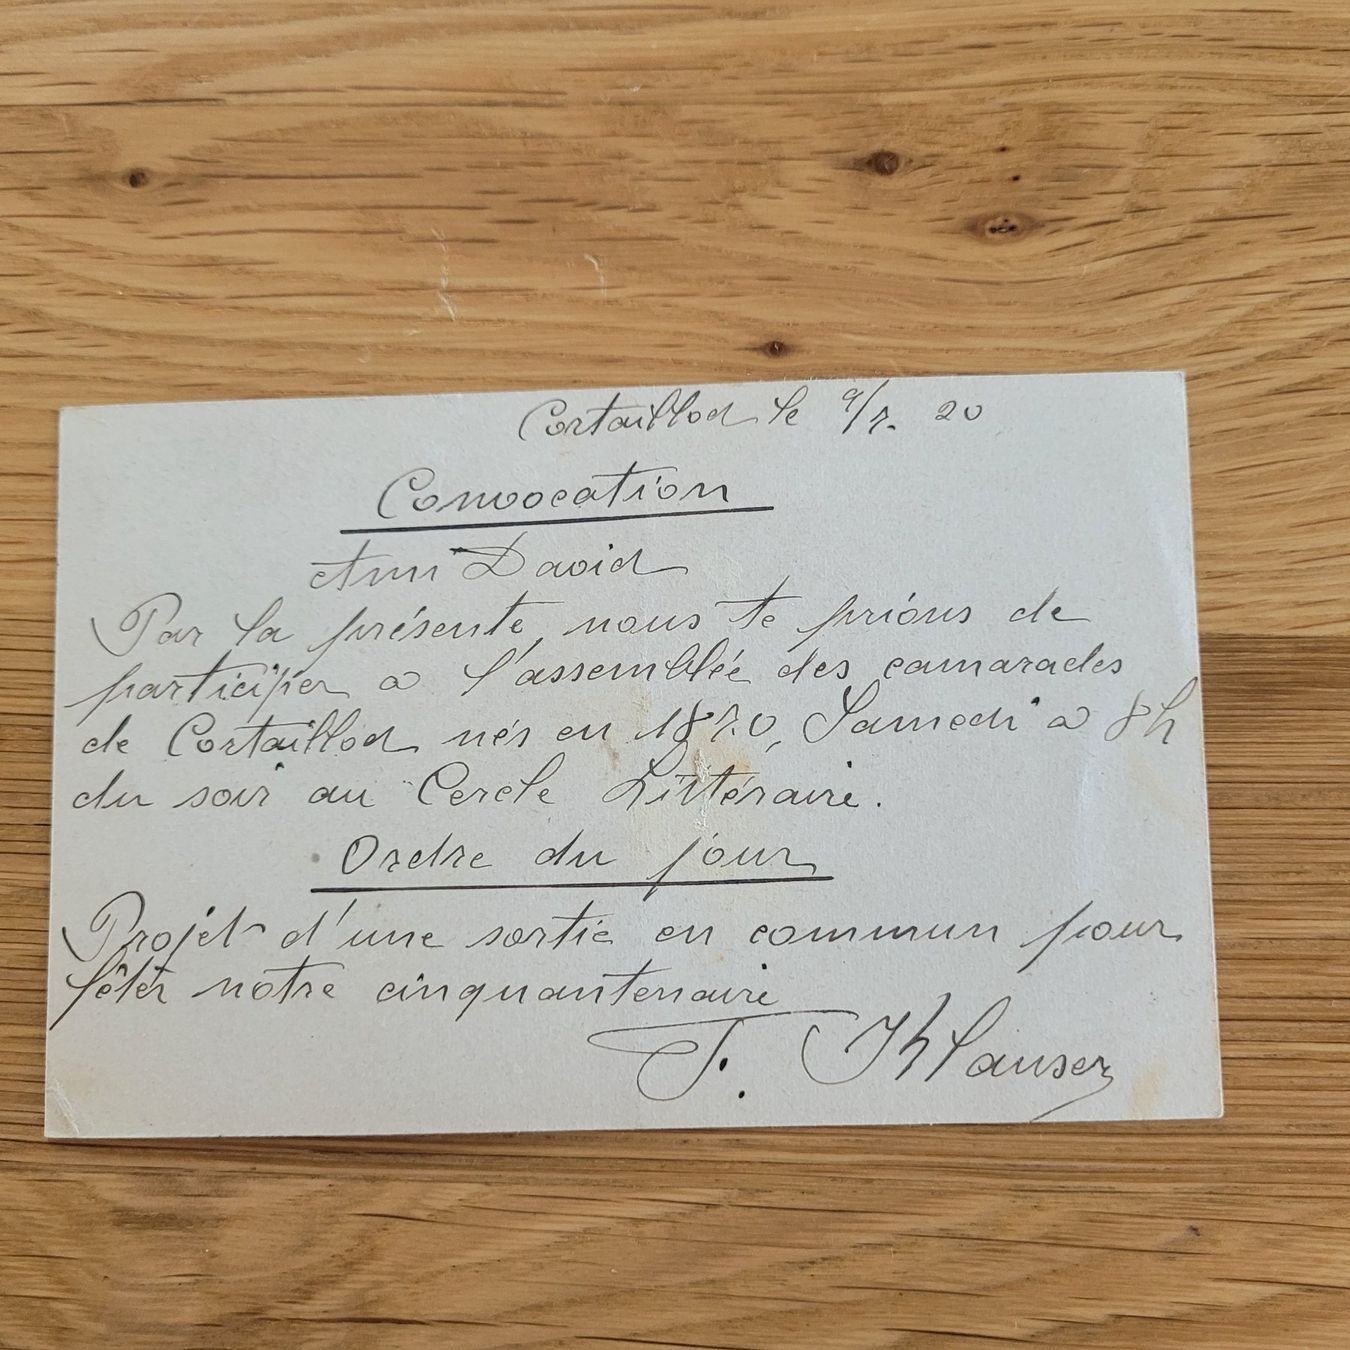 Cortaillod le 9/7. 20
Convocation
Ami David
Par la présente, nous te prions de
participer a l'assemblée des camarades
de Cortaillod nés en 1870, Samedi a 8h
du soir au Cercle Littéraire.
Ordre du jour
Projet d'une sortie en commun pour
fêter notre cinquantenaire